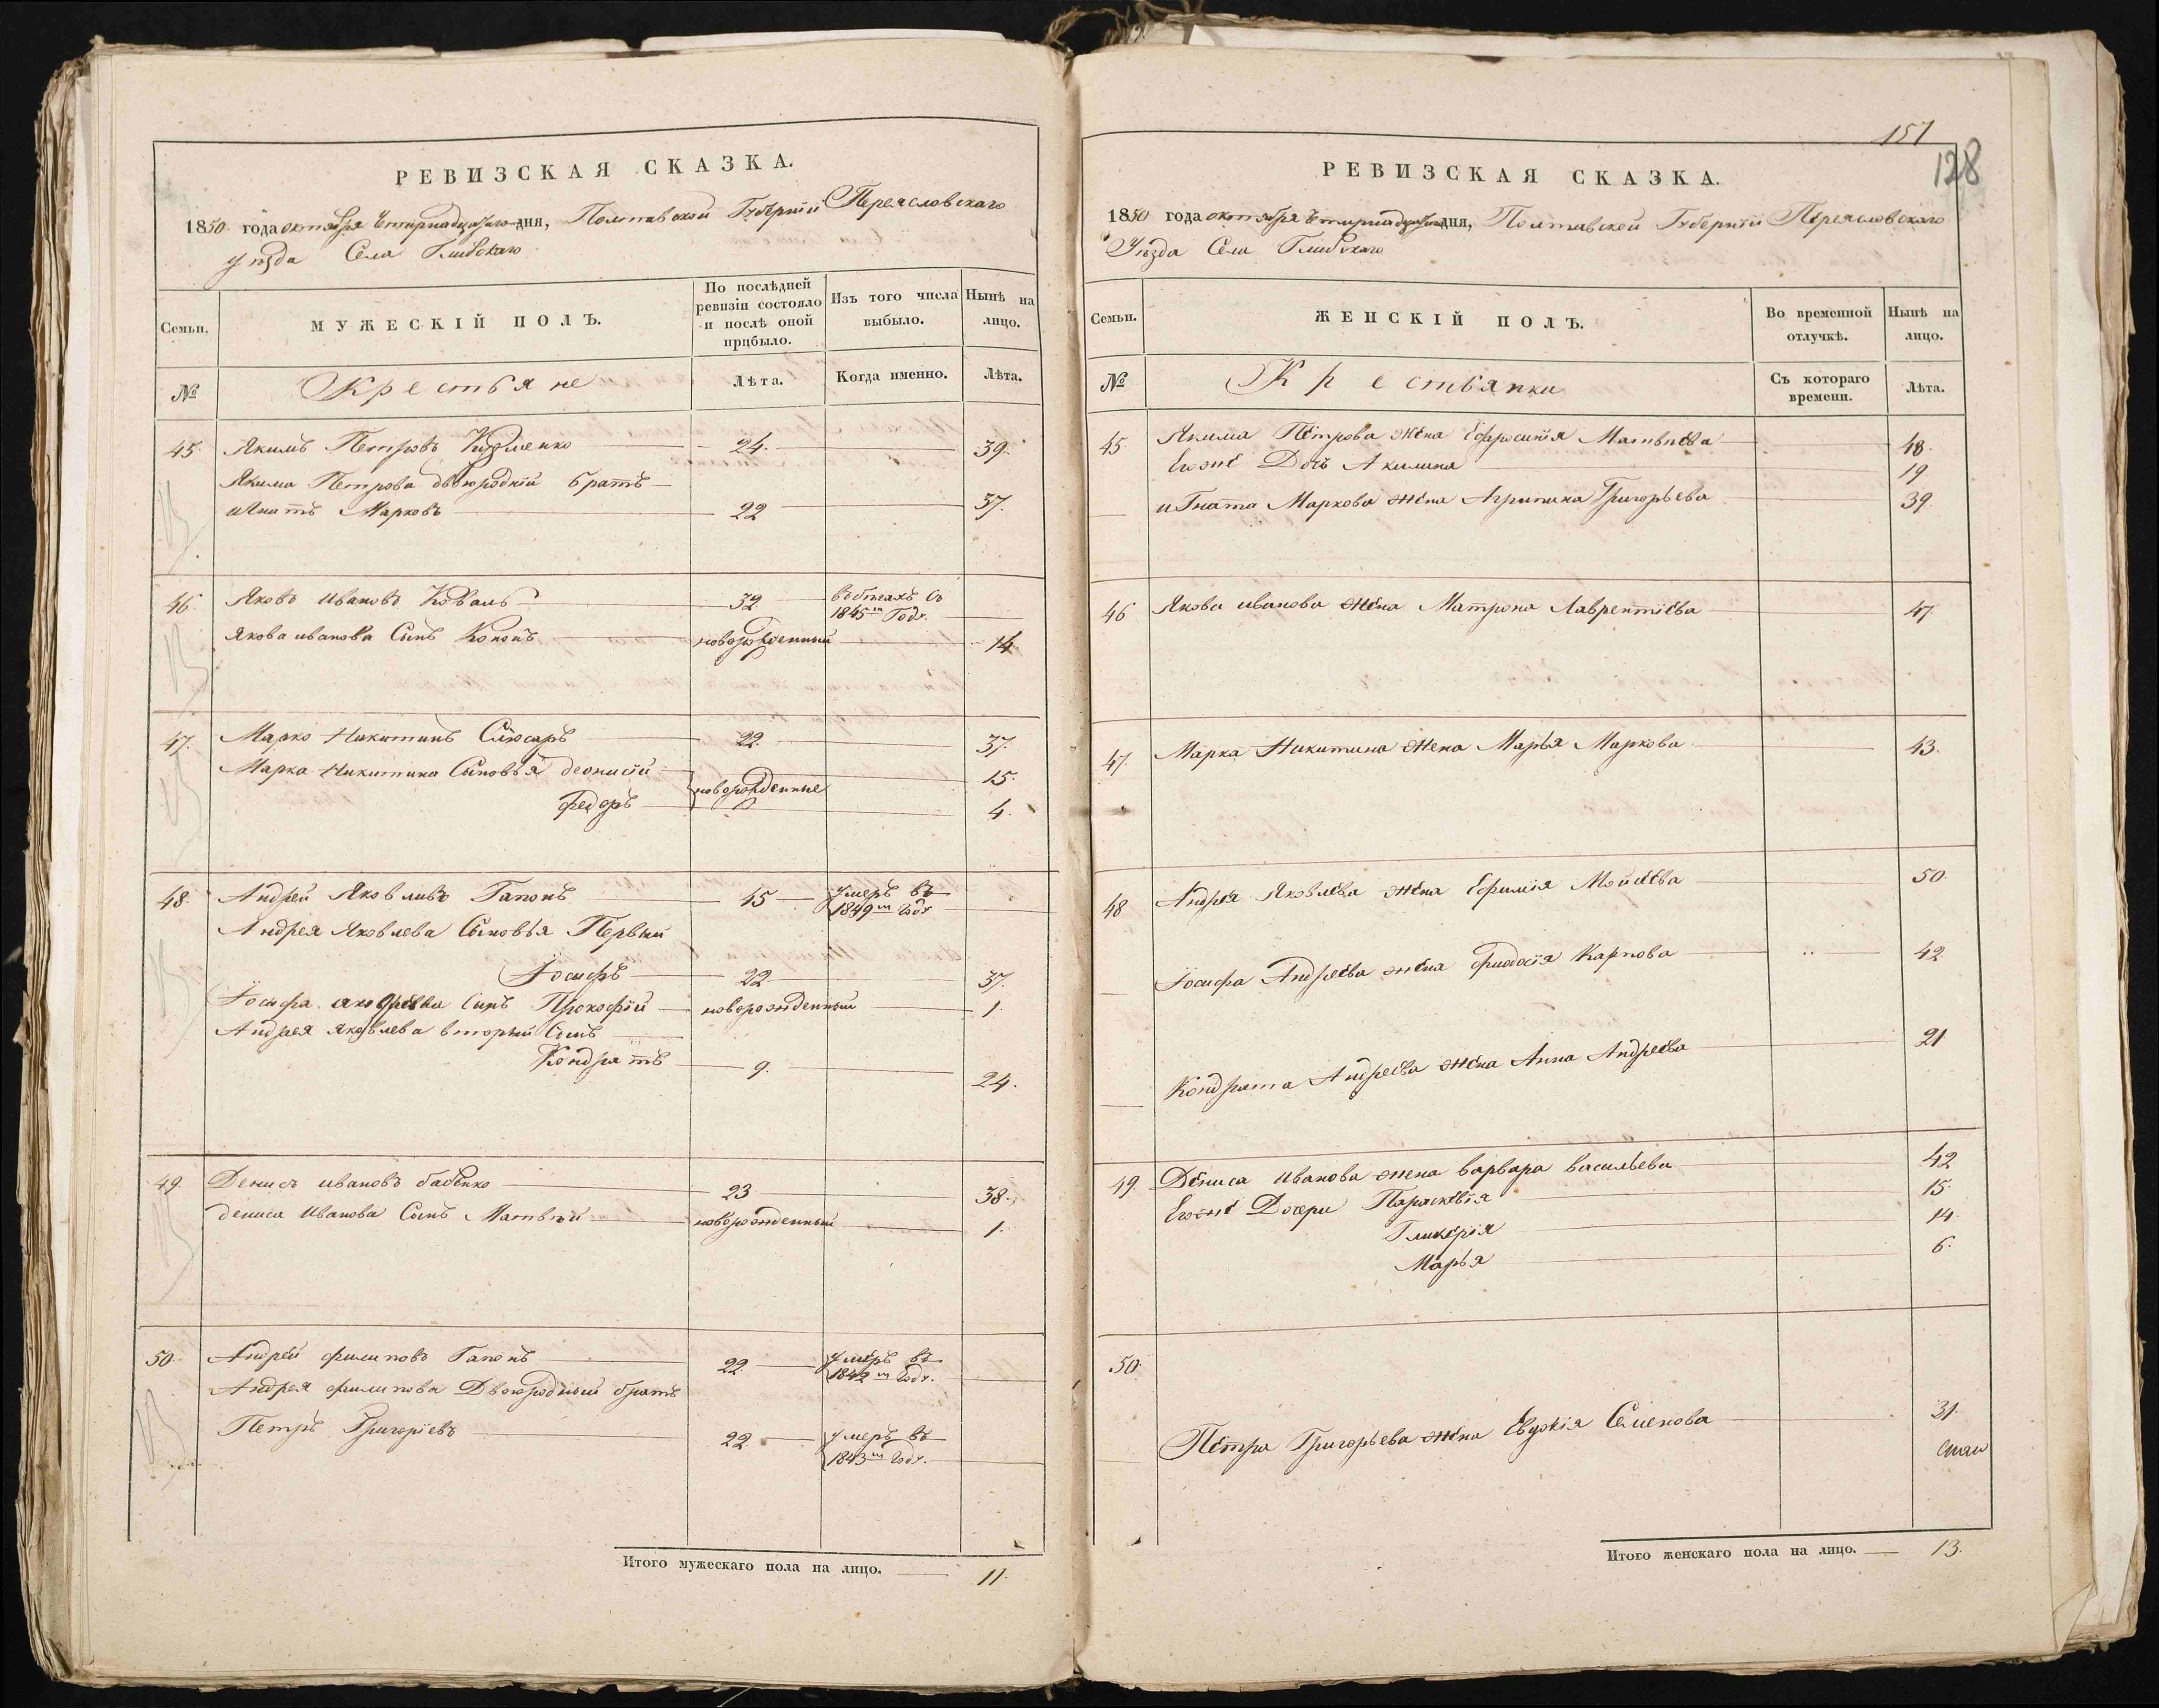 РЕВИЗСКАЯ СКАЗКА.
1850 года октября Четырнадцатаго дня, Полтавской Губерніи Переясловскаго
уѣзда Села
Семьи.
МУЖЕСКІЙ ПОЛЪ.
По послѣдней ревизіи состояло и послѣ оной прибыло.
Изъ того числа выбыло.
Нынѣ на лицо.
№
Крестьяне
Лѣта.
Когда именно.
Лѣта.
45. Якимъ Петровъ 24. 39.
Якима Петрова двоюродній братъ
игнатъ Марковъ 22 37.
46. Яковъ ивановъ Коваль 32 въ бѣгахъ съ
1845 го Году.
Якова иванова Сынъ Кононъ новорожденный 14
47. Марко Никитинъ Слюсаръ 22. 37.
Марка Никитина Сыновья деонисій 15.
новорожденные
федоръ 4.
48. Андрей Яковливъ Гапонъ 45 умеръ въ
1849 м Году
Андрея Яковлева Сыновья Первый
Іосифъ 22 37.
Іосифа андреева Сынъ Прокофій новорожденный 1.
Андрея Яковлева вторый Сынъ
Кондратъ 9. 24.
49 Денисъ ивановъ бабенко 23 38.
дениса Иванова Сынъ Матвѣй новорожденный 1.
50. Андрей филиповъ Гапонъ 22 умеръ въ
1842 м Году.
Андрея филипова Двоюродный братъ
Петръ Григоріевъ 22 умеръ въ
1843 м Году.
Итого мужескаго пола на лицо. 11.
151
128
РЕВИЗСКАЯ СКАЗКА.
1850 года октября Четырнадцатаго дня, Полтавской Губерніи Переясловскаго
Уѣзда Села
Семьи.
ЖЕНСКІЙ ПОЛЪ.
Во временной отлучкѣ.
Нынѣ на лицо.
№
Крестьянки
Съ котораго времени.
Лѣта.
45 Якима Петрова жена Ефросинія Матвѣева 48.
Егоже Дочь Акилина 19
игната Маркова жена Агрипина Григорьева 39.
46 Якова иванова жена Матрона Лаврентіева 47
47 Марка Никитина жена Марья Маркова 43.
48 Андрея Яковлева жена Ефимія Мойсеева 50.
Іосифа Андреева жена Феодосія Карпова 42
Кондрата Андреева жена Анна Андреева 21
49. Дениса Иванова жена варвара васильева 42
Егоже Дочери Параскевія 15.
Гликерія 14.
Марья 6.
50.
Петра Григорьева жена Евдокія Семенова 31.
Итого женскаго пола на лицо. 13.